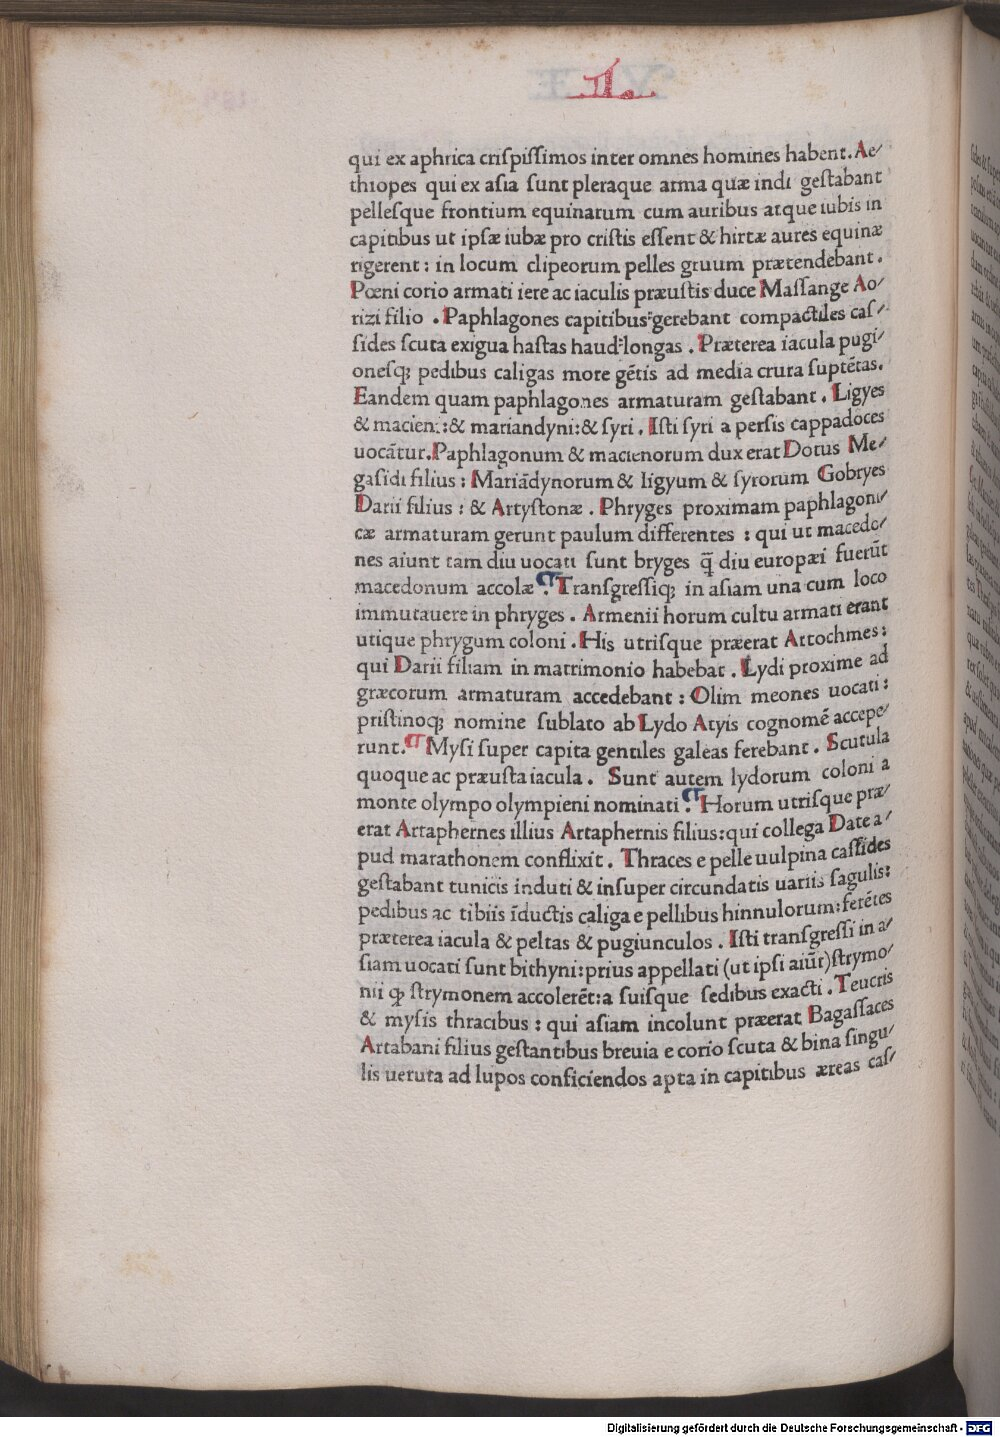 L.
qui ex aphrica criſpiſſimos inter omnes homines habent. Ae/
thiopes qui ex aſia ſunt pleraque arma quæ indi geſtabant
pelleſque frontium equinarum cum auribus atque iubis in
capitibus ut ipſæ iubæ pro criſtis eſſent & hirtæ aures equinæ
rigerent: in locum clipeorum pelles gruum prætendebant.
Pœni corio armati iere ac iaculis præuſtis duce Maſſange Ao/
rizi filio . Paphlagones capitibus gerebant compactiles caſ/
ſides ſcuta exigua haſtas haud longas . Præterea iacula pugi/
oneſqꝫ pedibus caligas more gētis ad media crura ſuptētas.
Eandem quam paphlagones armaturam geſtabant . Ligyes
& macieni:& mariandyni:& ſyri . Iſti ſyri a perſis cappadoces
uocātur. Paphlagonum & macienorum dux erat Dotus Me/
gaſidi filius: Mariādynorum & ligyum & ſyrorum Gobryes
Darii filius: & Artyſtonæ . Phryges proximam paphlagoni/
cæ armaturam gerunt paulum differentes : qui ut macedo/
nes aiunt tam diu uocati ſunt bryges q̄ diu europæi fuerūt
macedonum accolæ. ¶ Tranſgreſſiqꝫ in aſiam una cum loco
immutauere in phryges . Armenii horum cultu armati erant
utique phrygum coloni . His utriſque præerat Artochmes:
qui Darii filiam in matrimonio habebat . Lydi proxime ad
græcorum armaturam accedebant: Olim meones uocati:
priſtinoqꝫ nomine ſublato ab Lydo Atyis cognomē accepe/
runt. ¶ Myſi ſuper capita gentiles galeas ferebant . Scutula
quoque ac præuſta iacula . Sunt autem lydorum coloni a
monte olympo olympieni nominati. ¶ Horum utriſque præ/
erat Artaphernes illius Artaphernis filius:qui collega Date a/
pud marathonem conflixit . Thraces e pelle uulpina caſſides
geſtabant tunicis induti & inſuper circundatis uariis ſagulis:
pedibus ac tibiis īductis caliga e pellibus hinnulorum:ferētes
præterea iacula & peltas & pugiunculos . Iſti tranſgreſſi in a/
ſiam uocati ſunt bithyni:prius appellati (ut ipſi aiūt)ſtrymo/
nii ꝙ ſtrymonem accolerēt:a ſuiſque ſedibus exacti . Teucris
& myſis thracibus : qui aſiam incolunt præerat Bagaſſaces
Artabani filius geſtantibus breuia e corio ſcuta & bina ſingu/
lis ueruta ad lupos conficiendos apta in capitibus æreas caſ/
Digitalisierung gefördert durch die Deutsche Forschungsgemeinschaft - DFG